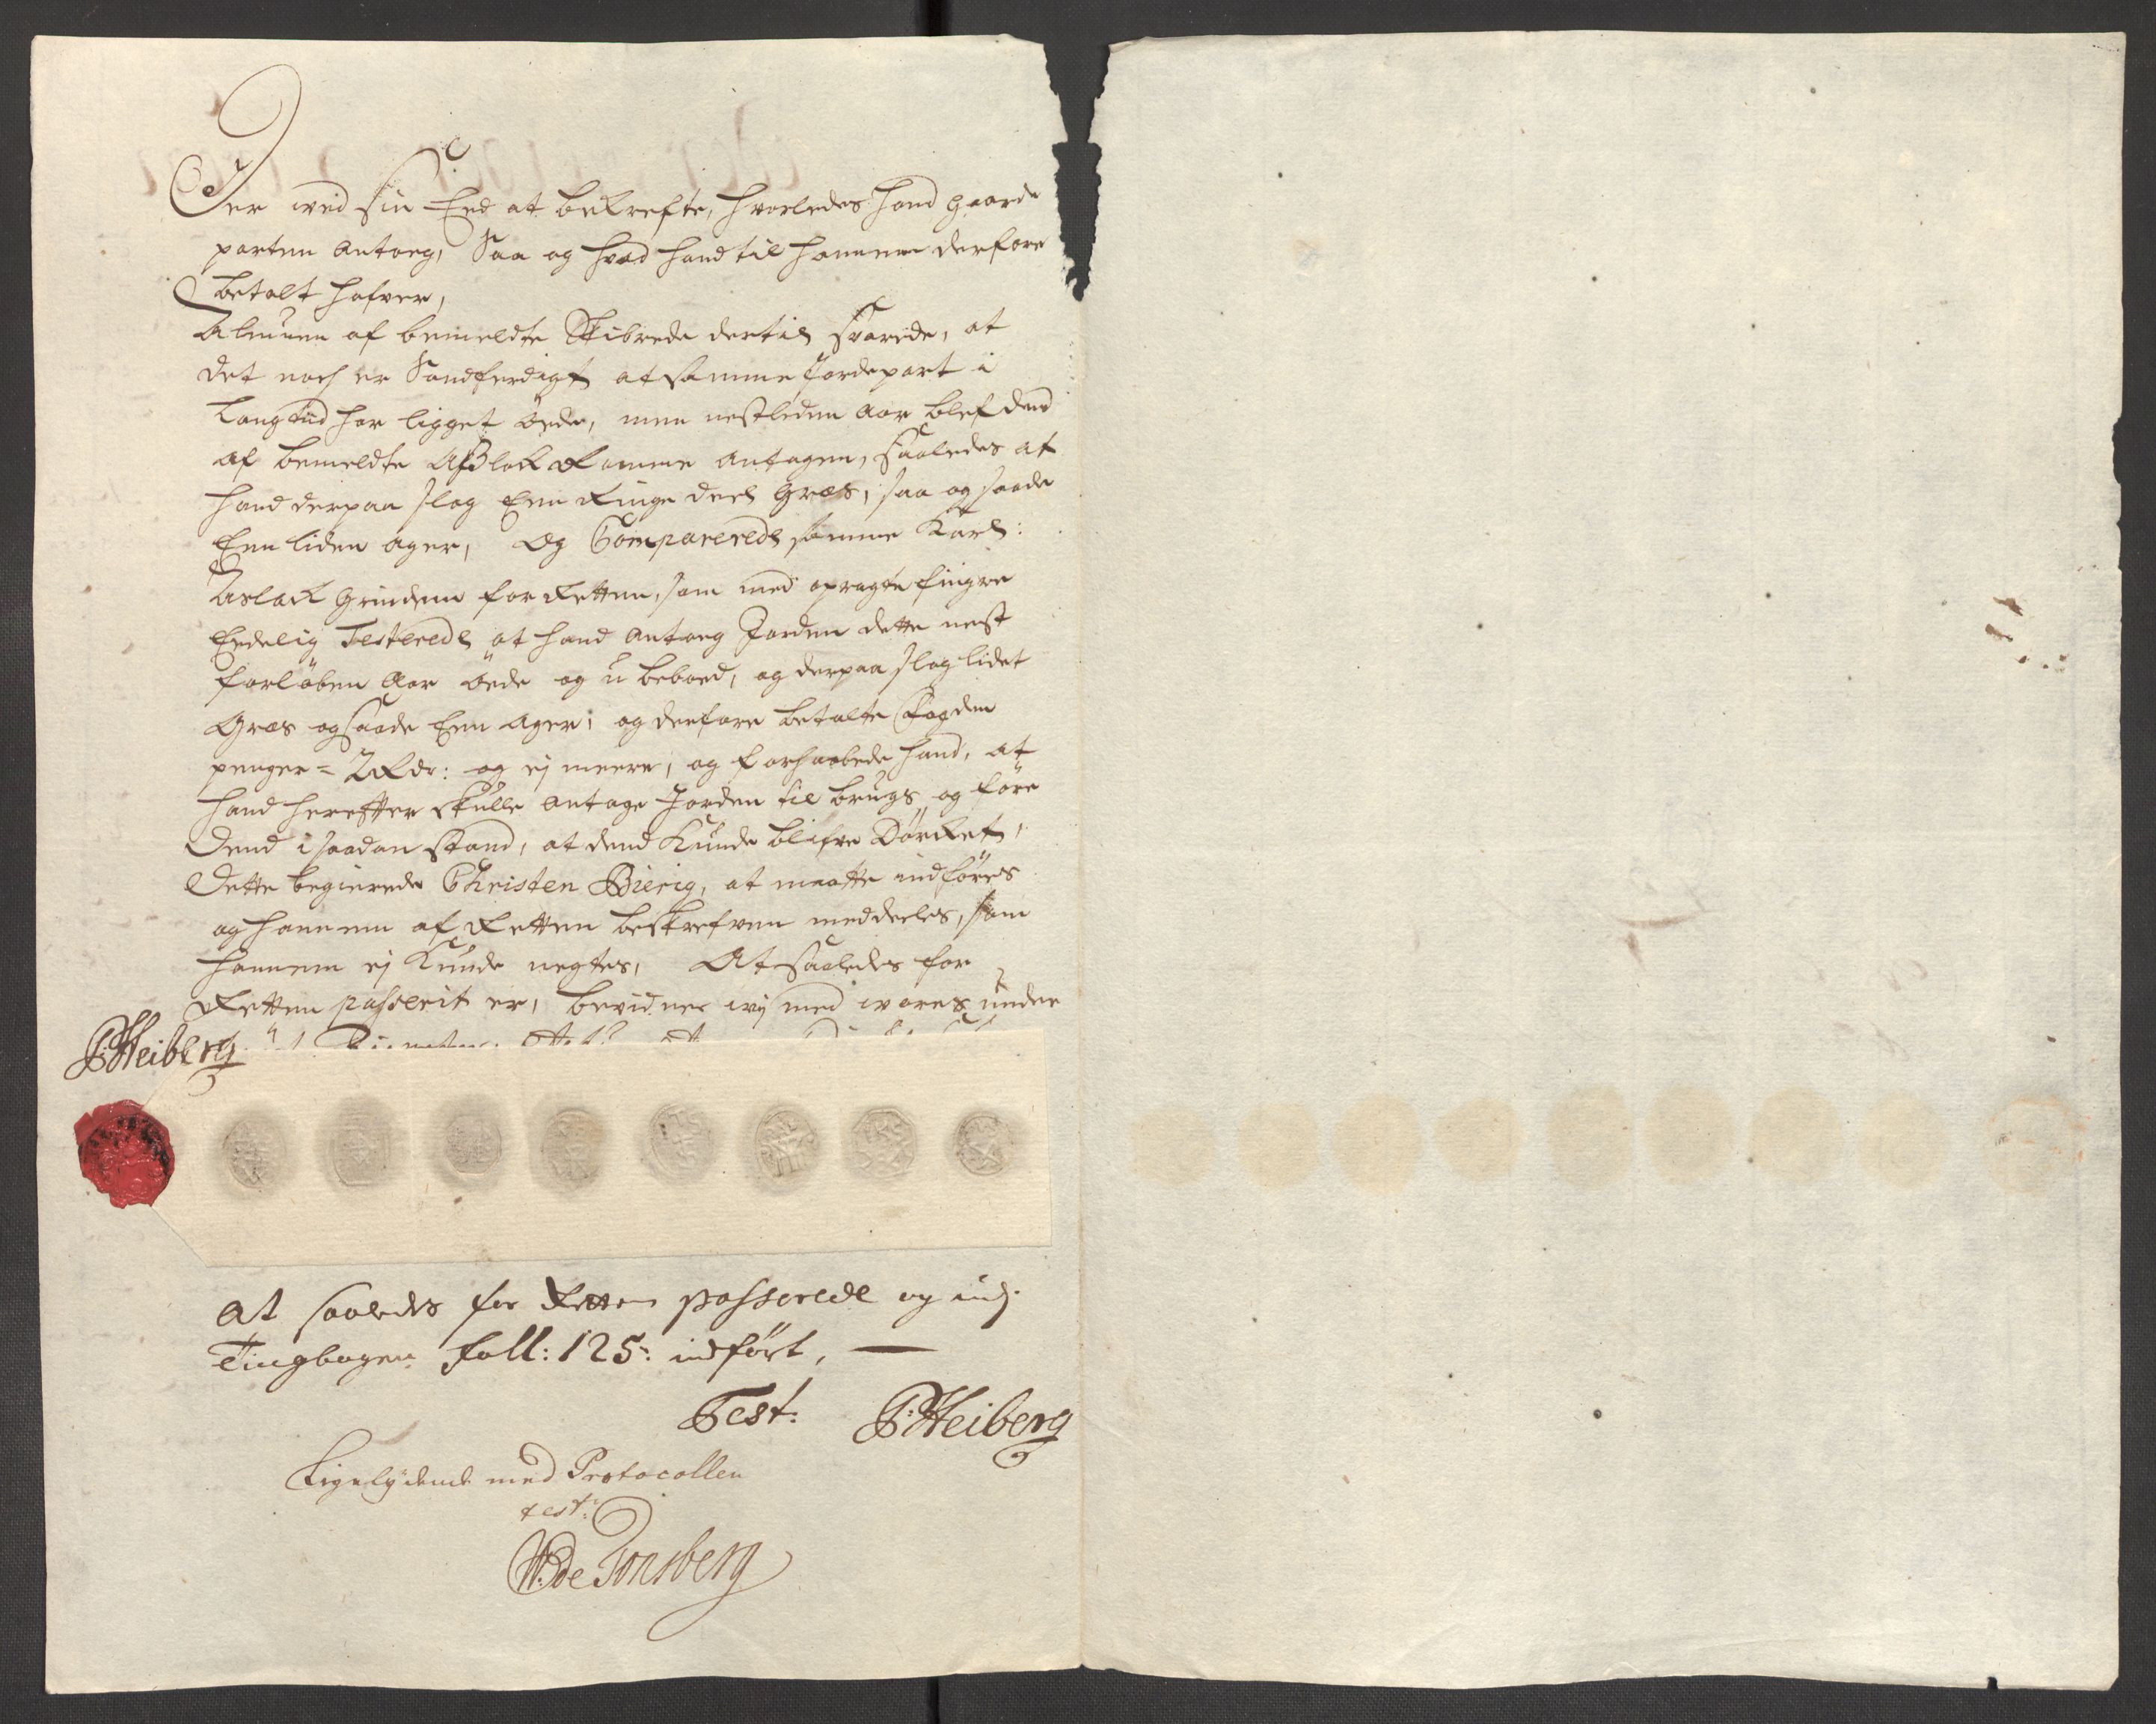 Der wed sin Eed at bekrefte, hvorledes hand gaarde
parten antoeg, Saa og hvad hand til hannem derfore
betalt hafver,
Almuen af bemeldte Skibrede dertil svarede, at
det noch er Sandferdigt at samme Jordepart i
Langtiid har ligget öede, men nestleden Aar blef dend
af bemeldte Aßlack Komme antagen, saaledes at
hand derpaa slog Een Ringe deel græs, saa og saade
Een liden ager, Og Comparerede samme Karl:
Aslack Grindem for Retten, som med opragte fingre
Eedelig Testerede at hand antoeg Jorden dette nest
forløben Aar öede og u beboed, og derpaa slog lidet
Græs og saade Een ager, og derfore betalte Fogden
penger = 2 Rdr: og ej meere, og forhaabede hand, at
hand herefter skulle antage Jorden til brugs og före
dend i saadan stand, at dend Kunde blifve Dörcket,
Dette begierede Christen Bierig, at maatte indföres
og hannem af Retten beskrefven meddeeles, som
hannem ej Kunde negtes, At saaledes for
Retten passerit er, bevidner wij med wores under
P: Heiberg
At saaledes for Retten passerede og udj
Tingbogen foll: 125: indfört,
Test: P: Heiberg
Ligelydende med Protocollen
test:
W: de Tonsberg